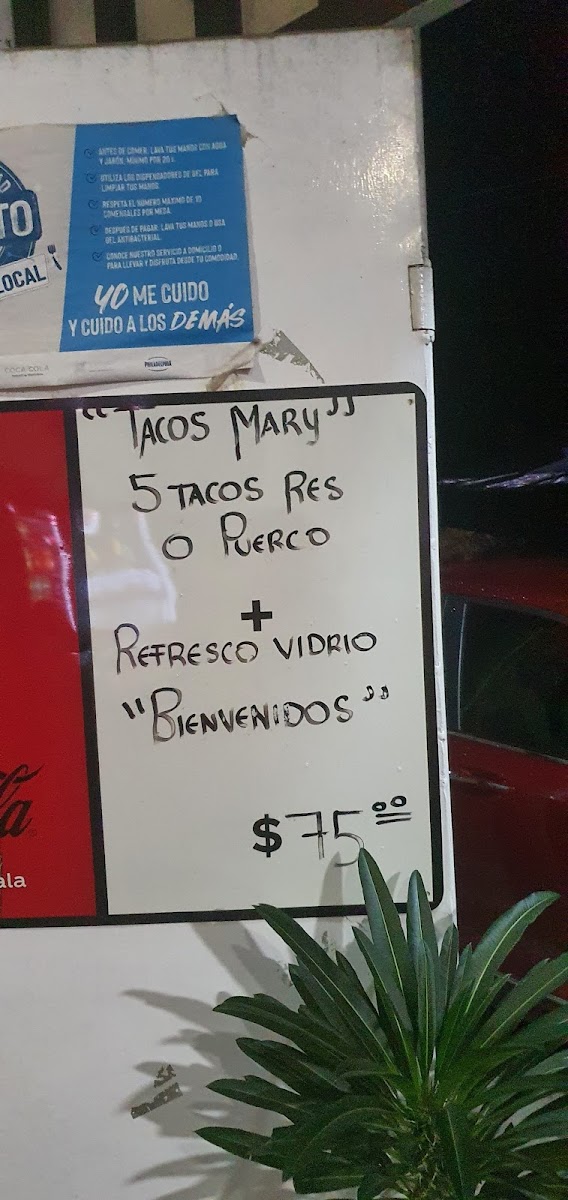 TO
LOCAL
ANTES DE COMER, LAVA TUS MANOS CON AGUA
Y JABÓN, MÍNIMO POR 20 s.
UTILIZA LOS DISPENSADORES DE GEL PARA
LIMPIAR TUS MANOS.
RESPETA EL NÚMERO MÁXIMO DE 10
COMENSALES POR MESA.
DESPUÉS DE PAGAR, LAVA TUS MANOS O USA
GEL ANTIBACTERIAL.
CONOCE NUESTRO SERVICIO A DOMICILIO O
PARA LLEVAR Y DISFRUTA DESDE TU COMODIDAD.
YO ME CUIDO
Y CUIDO A LOS DEMÁS
COCA COLA
PHILADELPHIA
"TACOS MARY"
5 TACOS RES
O PUERCO
+
REFRESCO VIDRIO
"BIENVENIDOS"
$75.00
la
ala